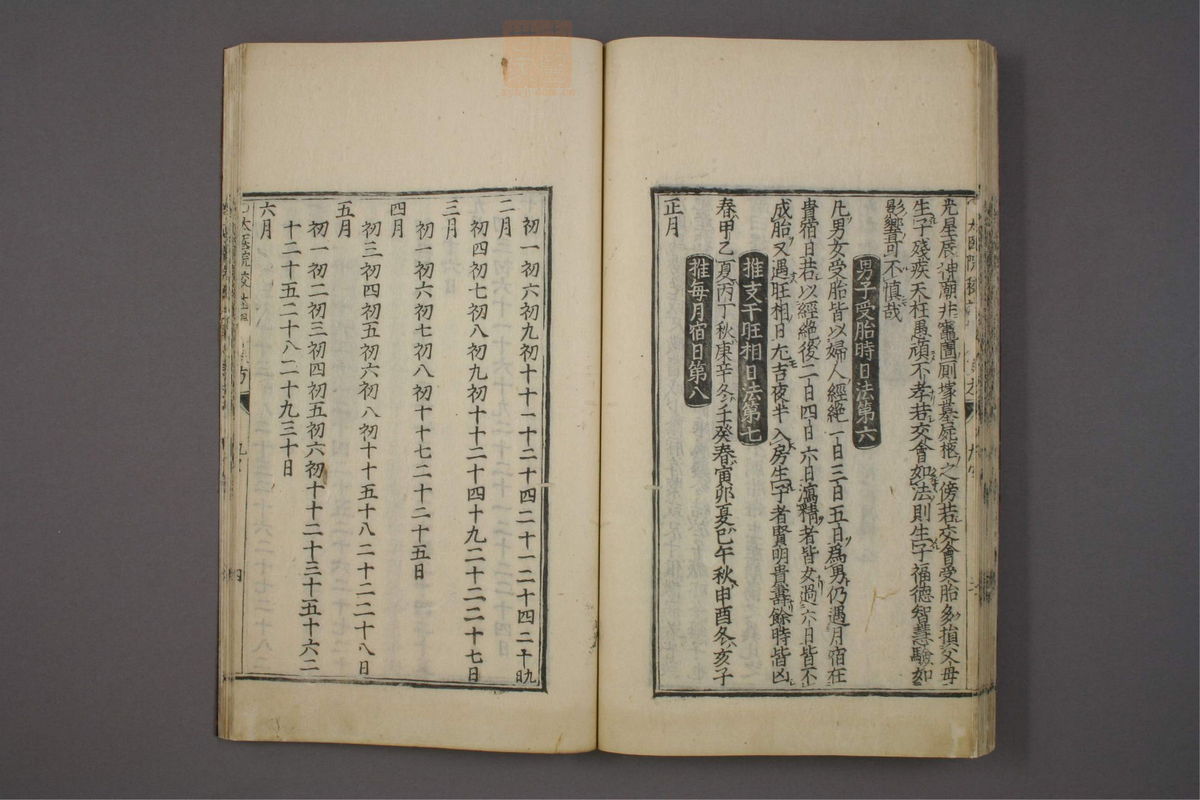 光星辰神廟井竈圊厠塚墓屍柩之傍若交會受胎多損父母
生子殘疾夭枉愚頑不孝若交會如法則生子福德智慧驗如
影響可不慎哉
男子受胎時日法第六
凡男女受胎皆以婦人經絶一日三日五日為男仍遇月宿在
貴宿日若以經絶後二日四日六日瀉精者皆女過六日皆不
成胎又遇旺相日尤吉夜半入房生子者賢明貴壽餘時皆凶
推支干旺相日法第七
春甲乙夏丙丁秋庚辛冬壬癸春寅卯夏巳午秋申酉冬亥子
推每月宿日第八
正月
初一初六初九初十十一十二十四二十一二十四二十九日
二月
初四初七初八初九初十十二十四十九二十二二十七日
三月
初一初六初七初八初十十七二十二十五日
四月
初三初四初五初六初八初十十五十八二十二二十八日
五月
初一初二初三初四初五初六初十十二十三十五十六二
十二十五二十八二十九三十日
六月
太医院校註
四